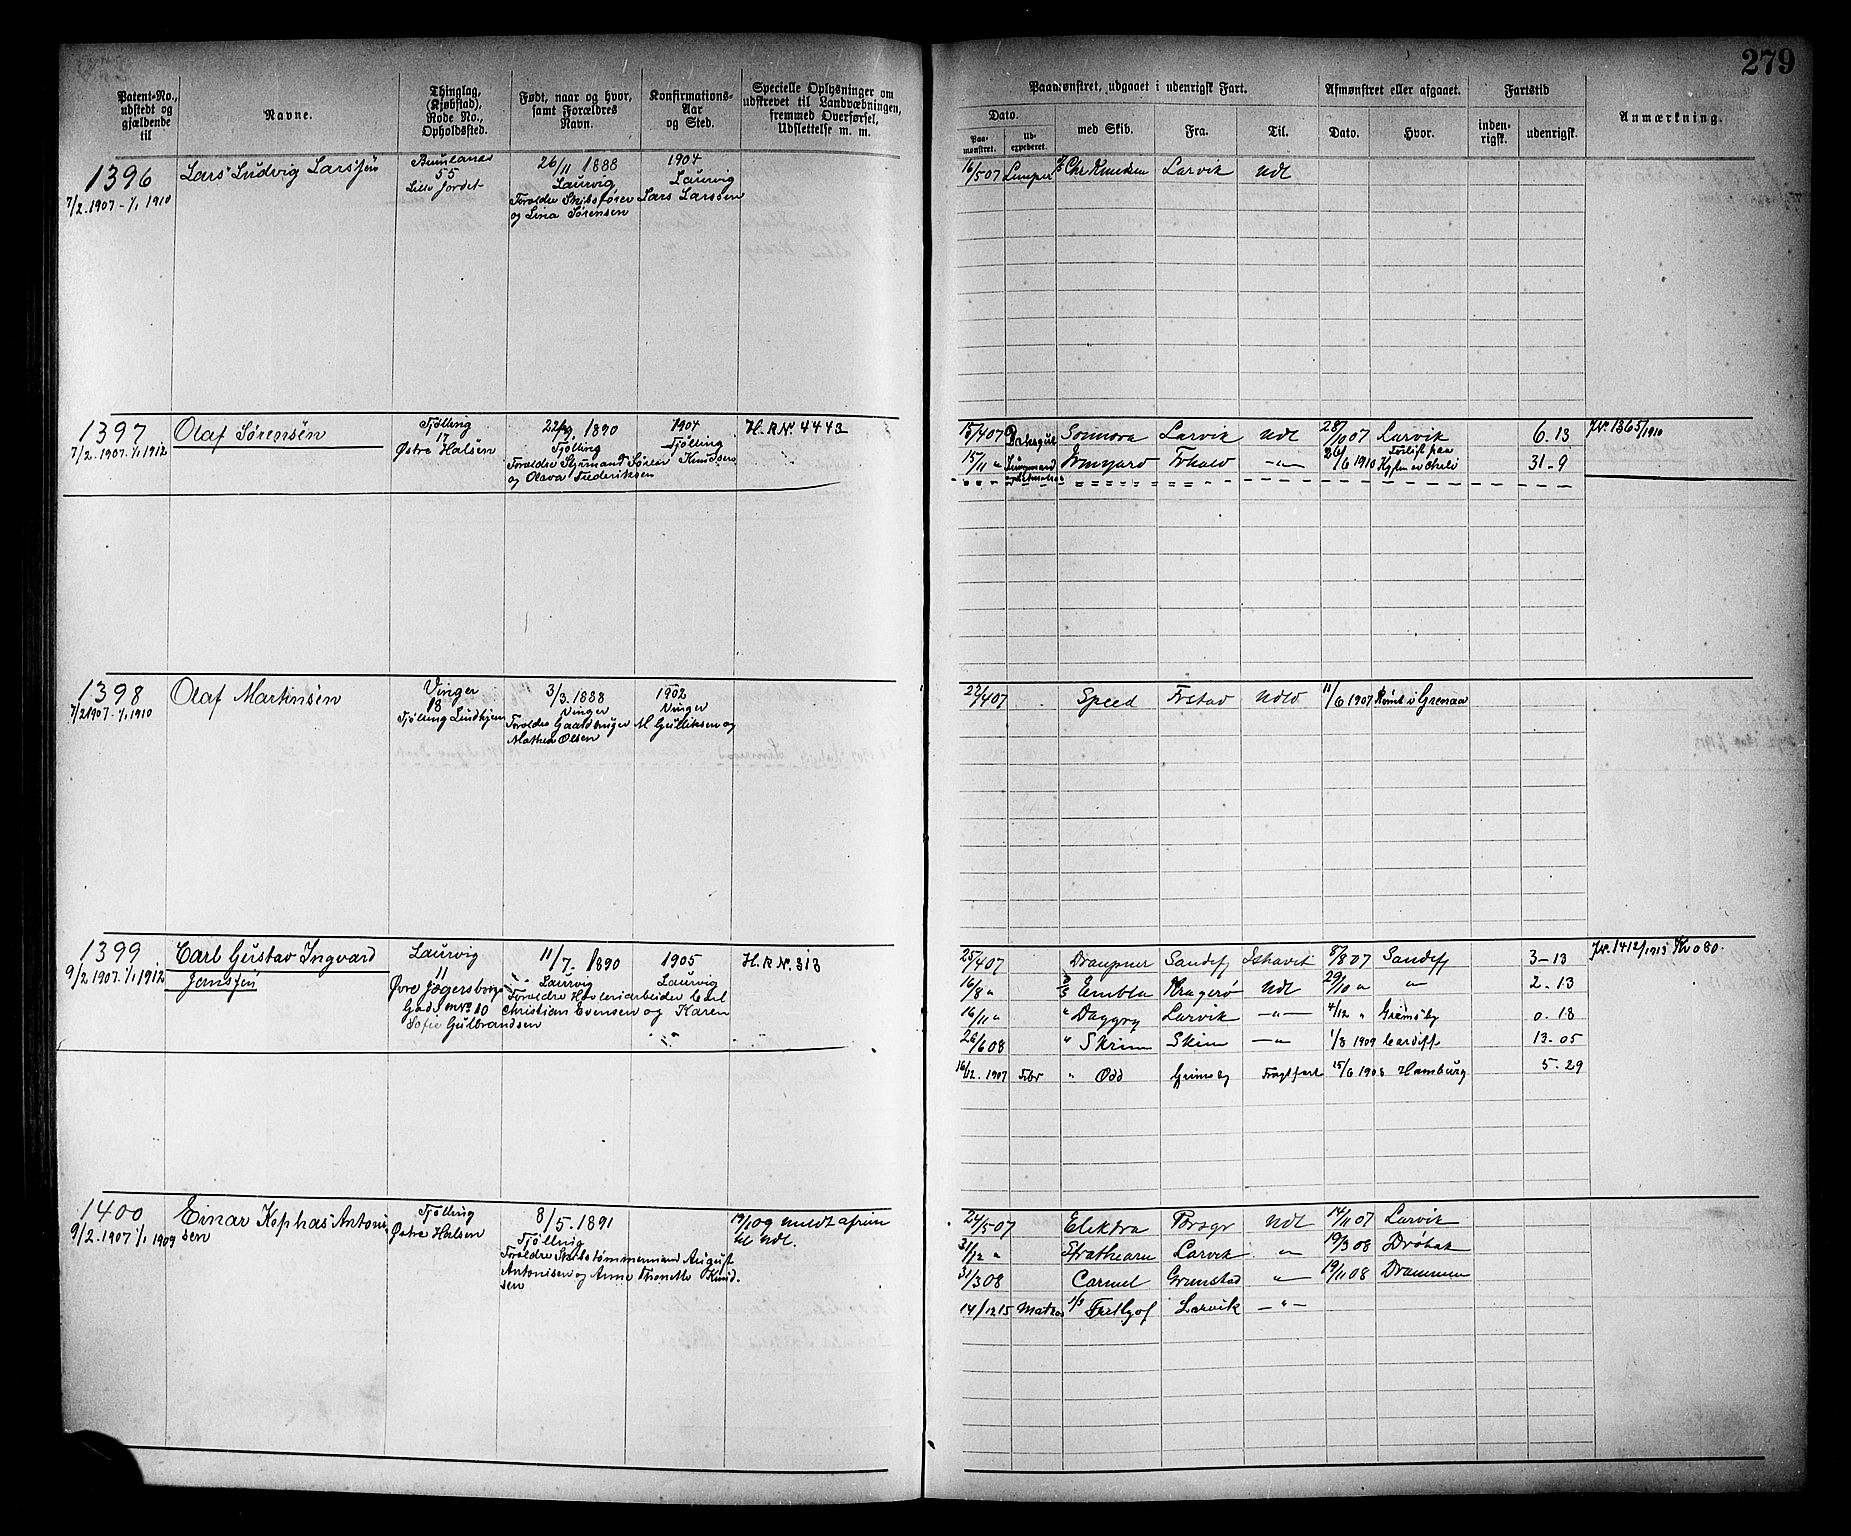 279
Patent-No., udstedt og gjældende til
Navne.
Thinglag, (Kjøbstad), Rode No., Opholdssted.
Født, naar og hvor, samt Forældres Navn.
Konfirmations-Aar og Sted.
Specielle Oplysninger om udstrevet til Landvæbningen, fremmed Overførsel, Udslettelse m. m.
Paamønstret, udgaaet i udenrigsk Fart.
Dato.
Paa-mønstret.
Ud-expederet.
med Skib.
Fra.
Til.
Afmønstret eller afgaaet.
Dato.
Hvor.
Fartstid
inden-rigsk.
udenrigsk.
Anmærkning.
1396
7/2.1907-1/1 1910
Lars Ludvig Larssen
Brunlanæs
55
Lille Jordet
26/11 1888
Laurvig
Foreldre Skibsfører Lars Larssen
og Lina Sørensen
1904
Laurvig
16/5 07 Lemper Chr Knudsen Larvik Udl
1397
7/2.1907.1/1 1912
Olaf Sørensen
Tjølling
17
Østre Halsen
22/9 1890
Tjølling
Foreldre Styrmand Søren Knudsen
og Olava Frederiksen
1904
Tjølling
H.R.Nº. 4443
15/4 07 Dæksgut Sonnora Larvik Udl 28/10 07 Larvik 6.13
J.Nº. 1365/1910
15/11 " Jungmand Irmgard Frhald —"— 26/6 1910 Forlist paa Kysten av Chili 31-9
1398
7/2 1907.1/1 1910
Olaf Martinsen
Vinger
18
Tjølling Lindhjem
3/3.1888
Vinger
Foreldre Gaardbruger M Gulliksen og
Mathea Olsen
1902
Vinger
22/4 07 Speed Frstad Udld 11/6 1907 Rømt i Grenaa
1399
9/2.1907.1/1 1912
Carl Gustav Ingvard
Jenssen
Laurvig
11
Øvre Jegersborg
Gade nrº 10
11/7. 1890
Laurvig
Foreldre Høvleriarbeider Carl
Christian Evensen og Karen
Sofie Gulbrandsen
1905
Laurvig
H.R.Nº. 313
25/4 07 Draupner Sandefj Ishavet 8/8 07 Sandefj 3-13
J.Nº. 1412/1913
16/8 " Embla Kragerø Udl 29/10 " " 2-13
16/11 " " Daggry Larvik —"— 4/12 " Grimsby 0.18
26/6 08 " Skrim Skien —"— 1/8 1909 Cardiff 13-05
16/12.1907 Fbr " Odd Grimsby Fragtfart 15/6 1908 Hamburg 5-29
1400
9/2.1907 1/1 1909
Einar Kephas Antoni-
sen
Tjølling
Østre Halsen
8/5.1891
Tjølling
Foreldre Skibstømmermand August
Antonisen og Anne Thonette Knud-
sen
19/1 09 meldt afreise
til Udl.
24/5 07 Elektra Porsgr Udl 14/11 07 Larvik
31/12 " Strathearn Larvik " 19/3 08 Drøbak
31/3 08 Carmel Grimstad " 19/11 08 Drammen
14/12 15 Matros S/S Fridtjof Larvik —"—